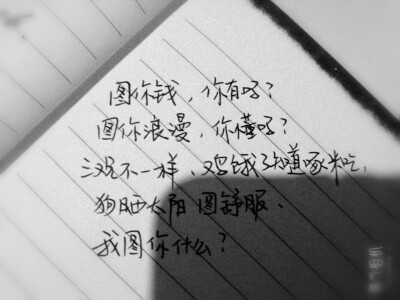 图你钱，你有吗？
图你浪漫，你懂吗？
三观不一样、鸡饿了知道啄米吃，
狗晒太阳图舒服、
我图你什么？